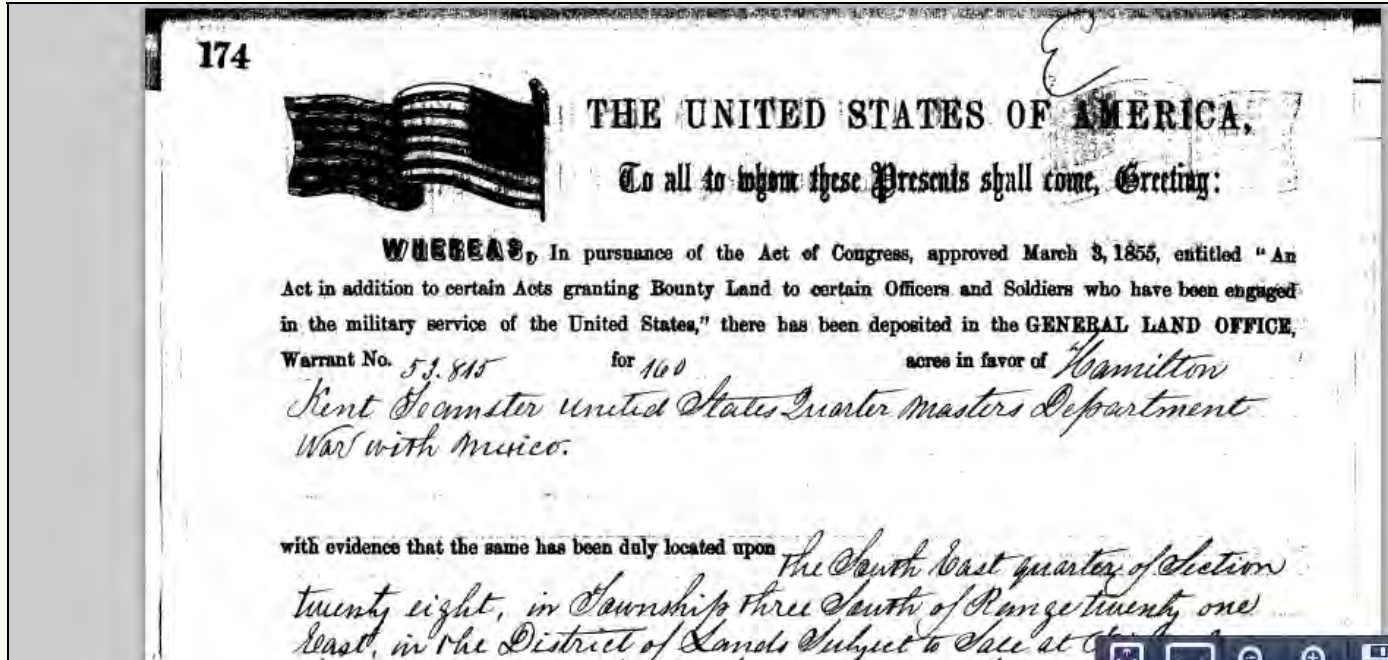 174
THE UNITED STATES OF AMERICA,
To all to whom these Presents shall come, Greeting:
WHEREAS, In pursuance of the Act of Congress, approved March 3, 1855, entitled "An
Act in addition to certain Acts granting Bounty Land to certain Officers and Soldiers who have been engaged
in the military service of the United States," there has been deposited in the GENERAL LAND OFFICE,
Warrant No. 53.815 for 160 acres in favor of Hamilton
Kent Teamster United States Quarter Masters Department
War with Mexico.
with evidence that the same has been duly located upon the South East quarter of Section
twenty eight, in Township three South of Range twenty one
East, in the District of Lands Subject to Sale at